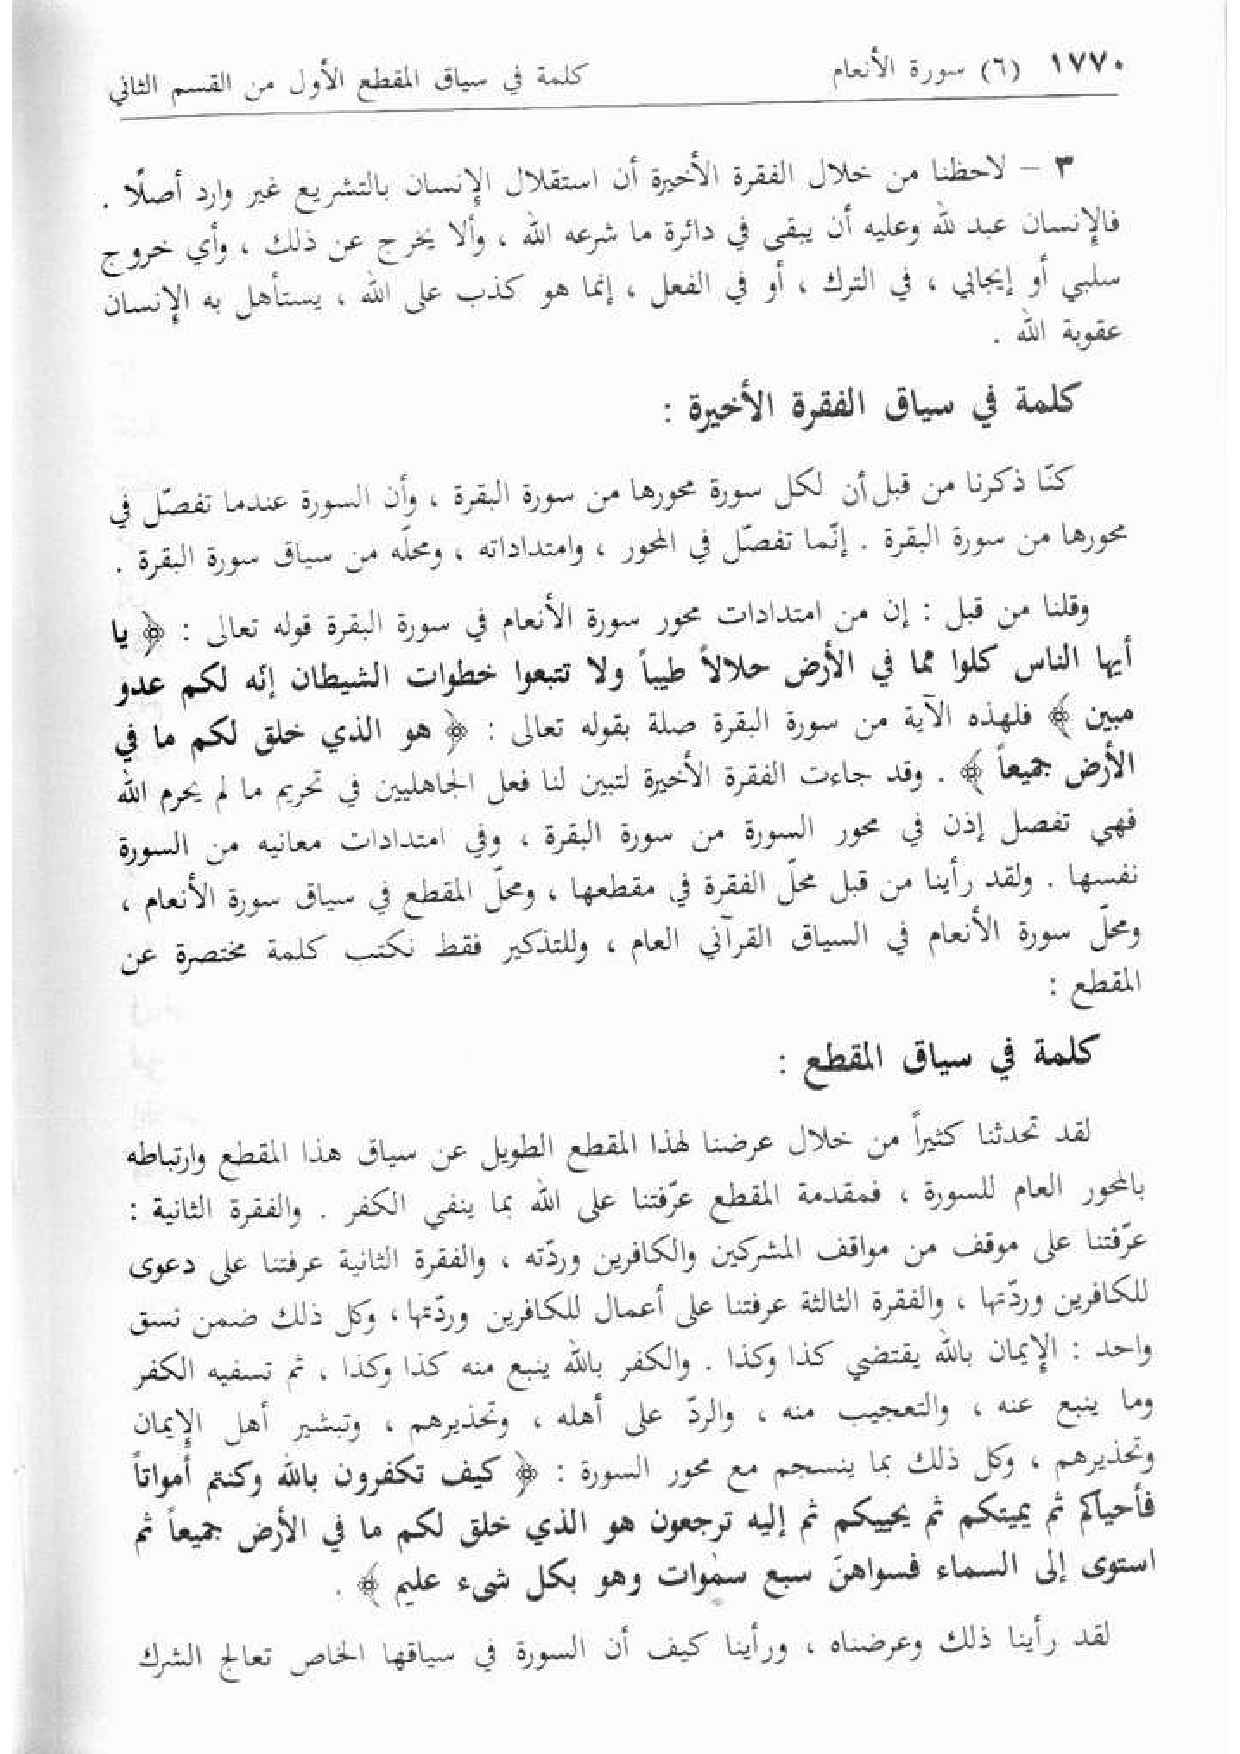 ١٧٧٠ (٦) سورة الأنعام كلمة في سياق المقطع الأول من القسم الثاني
٣ – لاحظنا من خلال الفقرة الأخيرة أن استقلال الإنسان بالتشريع غير وارد أصلًا .
فالإنسان عبد لله وعليه أن يبقى في دائرة ما شرعه الله ، وألا يخرج عن ذلك ، وأي خروج
سلبي أو إيجابي ، في الترك ، أو في الفعل ، إنما هو كذب على الله ، يستأهل به الإنسان
عقوبة الله .
كلمة في سياق الفقرة الأخيرة :
كنّا ذكرنا من قبل أن لكل سورة محورها من سورة البقرة ، وأن السورة عندما تفصّل في
محورها من سورة البقرة . إنّما تفصّل في المحور ، وامتداداته ، ومحلّه من سياق سورة البقرة .
وقلنا من قبل : إن من امتدادات محور سورة الأنعام في سورة البقرة قوله تعالى : ﴿ يا
أيها الناس كلوا مما في الأرض حلالاً طيباً ولا تتبعوا خطوات الشيطان إنه لكم عدو
مبين ﴾ فلهذه الآية من سورة البقرة صلة بقوله تعالى : ﴿ هو الذي خلق لكم ما في
الأرض جميعاً ﴾ . وقد جاءت الفقرة الأخيرة لتبين لنا فعل الجاهليين في تحريم ما لم يحرم الله
فهي تفصل إذن في محور السورة من سورة البقرة ، وفي امتدادات معانيه من السورة
نفسها . ولقد رأينا من قبل محلّ الفقرة في مقطعها ، ومحلّ المقطع في سياق سورة الأنعام ،
ومحلّ سورة الأنعام في السياق القرآني العام ، وللتذكير فقط نكتب كلمة مختصرة عن
المقطع :
كلمة في سياق المقطع :
لقد تحدثنا كثيراً من خلال عرضنا لهذا المقطع الطويل عن سياق هذا المقطع وارتباطه
بالمحور العام للسورة ، فمقدمة المقطع عرّفتنا على الله بما ينفي الكفر . والفقرة الثانية :
عرّفتنا على موقف من مواقف المشركين والكافرين وردّته ، والفقرة الثانية عرفتنا على دعوى
للكافرين وردّتها ، والفقرة الثالثة عرفتنا على أعمال للكافرين وردّتها ، وكل ذلك ضمن نسق
واحد : الإيمان بالله يقتضي كذا وكذا . والكفر بالله ينبع منه كذا وكذا ، ثم تسفيه الكفر
وما ينبع عنه ، والتعجيب منه ، والردّ على أهله ، وتحذيرهم ، وتبشير أهل الإيمان
وتحذيرهم ، وكل ذلك بما ينسجم مع محور السورة : ﴿ كيف تكفرون بالله وكنتم أمواتاً
فأحياكم ثم يميتكم ثم يحييكم ثم إليه ترجعون هو الذي خلق لكم ما في الأرض جميعاً ثم
استوى إلى السماء فسواهنّ سبع سمٰوات وهو بكل شيء عليم ﴾ .
لقد رأينا ذلك وعرضناه ، ورأينا كيف أن السورة في سياقها الخاص تعالج الشرك